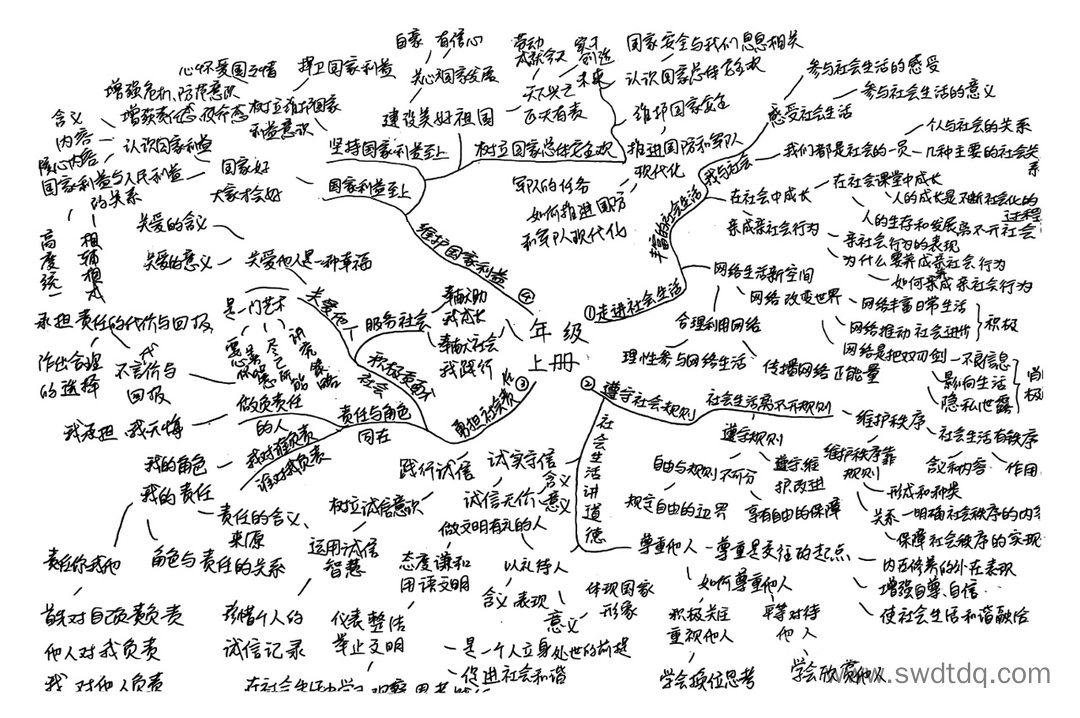 八年级
上册
①走进社会生活
丰富的社会生活
我与社会
感受社会生活
参与社会生活的感受
参与社会生活的意义
我们都是社会的一员
个人与社会的关系
几种主要的社会关系
在社会中成长
在社会课堂中成长
人的成长是不断社会化的过程
人的生存和发展离不开社会
亲成亲社会行为
亲社会行为的表现
为什么要养成亲社会行为
如何养成亲社会行为
网络生活新空间
网络改变世界
网络丰富日常生活
网络推动社会进步
积极
网络是把双刃剑
不良信息
影响生活
隐私泄露
合理利用网络
理性参与网络生活
传播网络正能量
②遵守社会规则
社会生活离不开规则
维护秩序
社会生活有秩序
含义和内容
作用
维护秩序靠规则
形成和种类
关系
明确社会秩序的内容
保障社会秩序的实现
遵守规则
自由与规则不可分
规定自由的边界
享有自由的保障
遵守、维护、改进
社会生活讲道德
尊重他人
尊重是交往的起点
内在修养的外在表现
增强自尊、自信
使社会生活和谐融洽
如何尊重他人
积极关注重视他人
平等对待他人
学会换位思考
学会欣赏他人
以礼待人
做文明有礼的人
态度谦和用语文明
仪表整洁举止文明
含义
表现
意义
体现国家形象
是一个人立身处世的前提
促进社会和谐
诚实守信
诚信无价
含义
意义
践行诚信
树立诚信意识
运用诚信智慧
珍惜个人的诚信记录
③勇担社会责任
责任与角色同在
我对谁负责
谁对我负责
我的角色
我的责任
责任的含义、来源
角色与责任的关系
责任你我他
首先对自己负责
他人对我负责
我对他人负责
做负责任的人
我承担 我无悔
不言代价与回报
承担责任的代价与回报
作出合理的选择
积极奉献社会
关爱他人
关爱他人是一种幸福
关爱的含义
关爱的意义
是一门艺术
讲究策略
尽己所能
服务社会
奉献助我成长
奉献社会我践行
④维护国家利益
国家利益至上
国家好大家才会好
认识国家利益
含义
内容
核心内容
国家利益与人民利益的关系
高度统一
相辅相成
坚持国家利益至上
树立维护国家利益意识
心怀爱国之情
增强危机、防范意识
捍卫国家利益
树立国家总体安全观
认识国家总体安全观
国家安全与我们息息相关
维护国家安全
推进国防和军队现代化
军队的任务
如何推进国防和军队现代化
建设美好祖国
关心国家发展
自豪
有信心
天下兴亡匹夫有责
劳动成就今天
实干创造未来
www.swdtdq.com